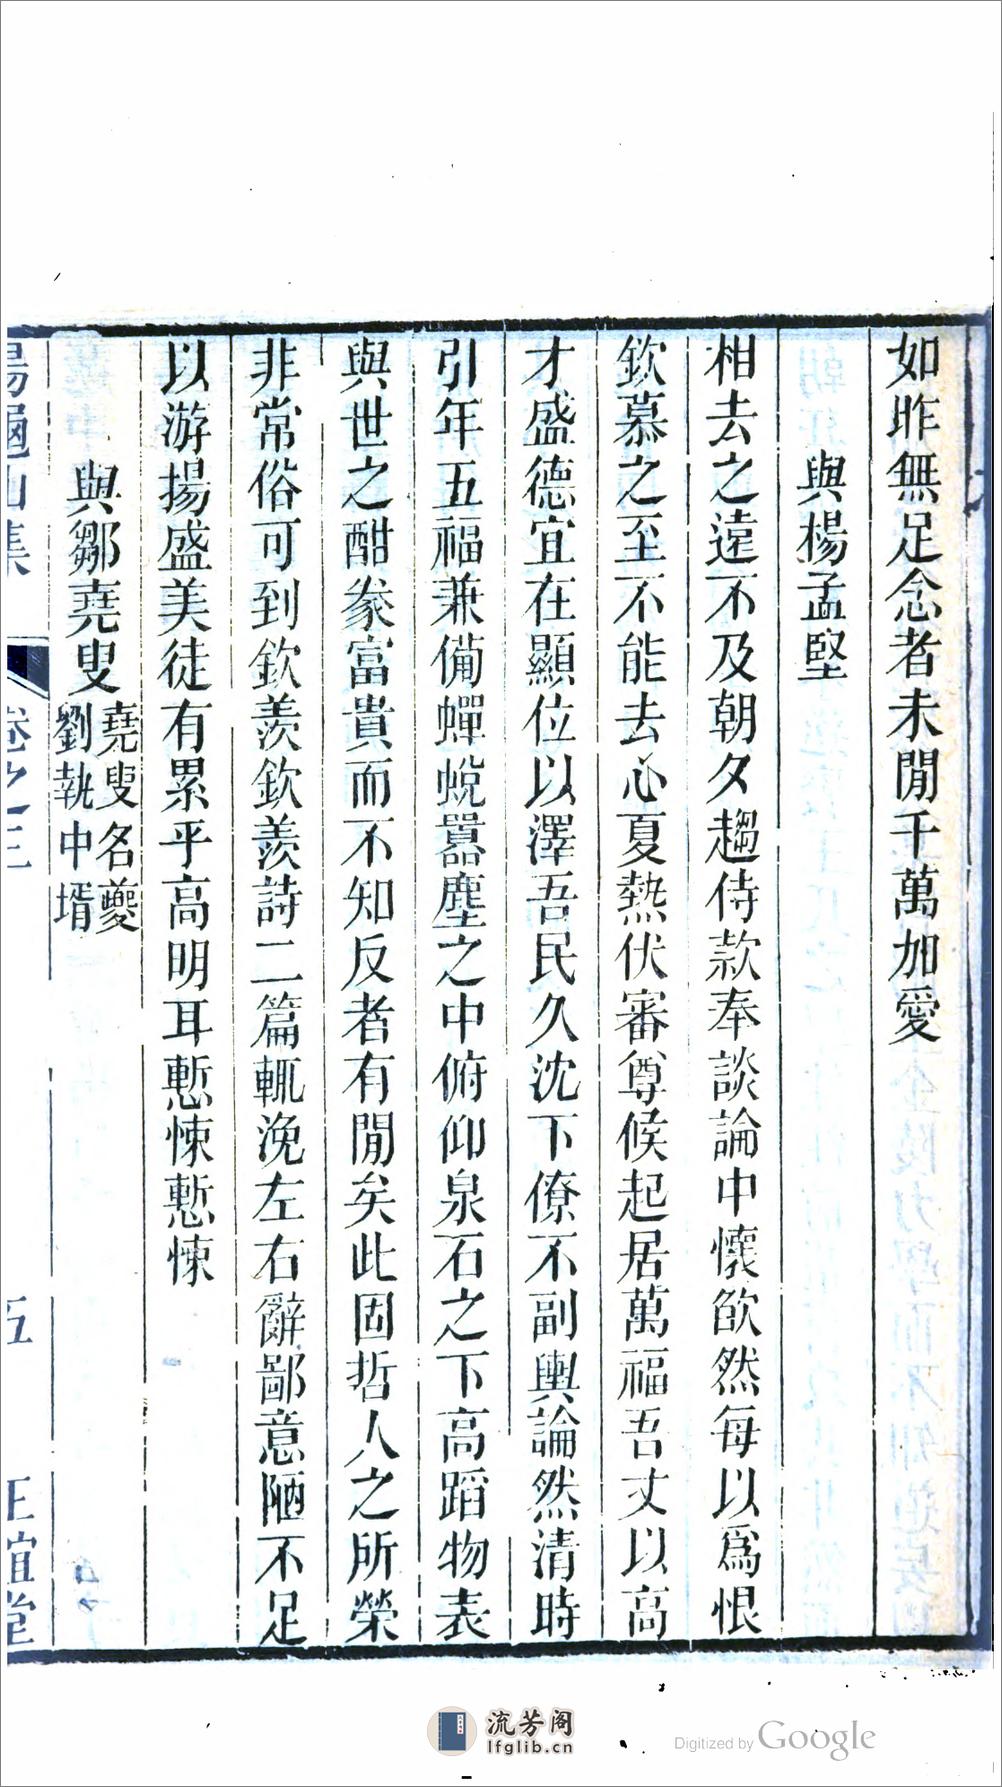 如昨無足念者未閒千萬加愛
與楊孟堅
相去之遠不及朝夕趨侍款奉談論中懷欿然每以爲恨
欽慕之至不能去心夏熱伏審尊候起居萬福吾丈以高
才盛德宜在顯位以澤吾民久沈下僚不副輿論然清時
引年五福兼備蟬蛻囂塵之中俯仰泉石之下高蹈物表
與世之酣豢富貴而不知反者有閒矣此固哲人之所榮
非常俗可到欽羨欽羨詩二篇輒浼左右辭鄙意陋不足
以游揚盛美徒有累乎高明耳慙悚慙悚
與鄒堯叟
堯叟名夔
劉執中壻
楊龜山集
卷之三
五
正誼堂
流芳阁
lfglib.cn
Digitized by Google